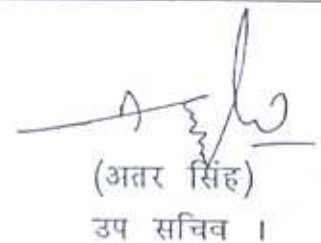 (अतर सिंह)
उप सचिव ।